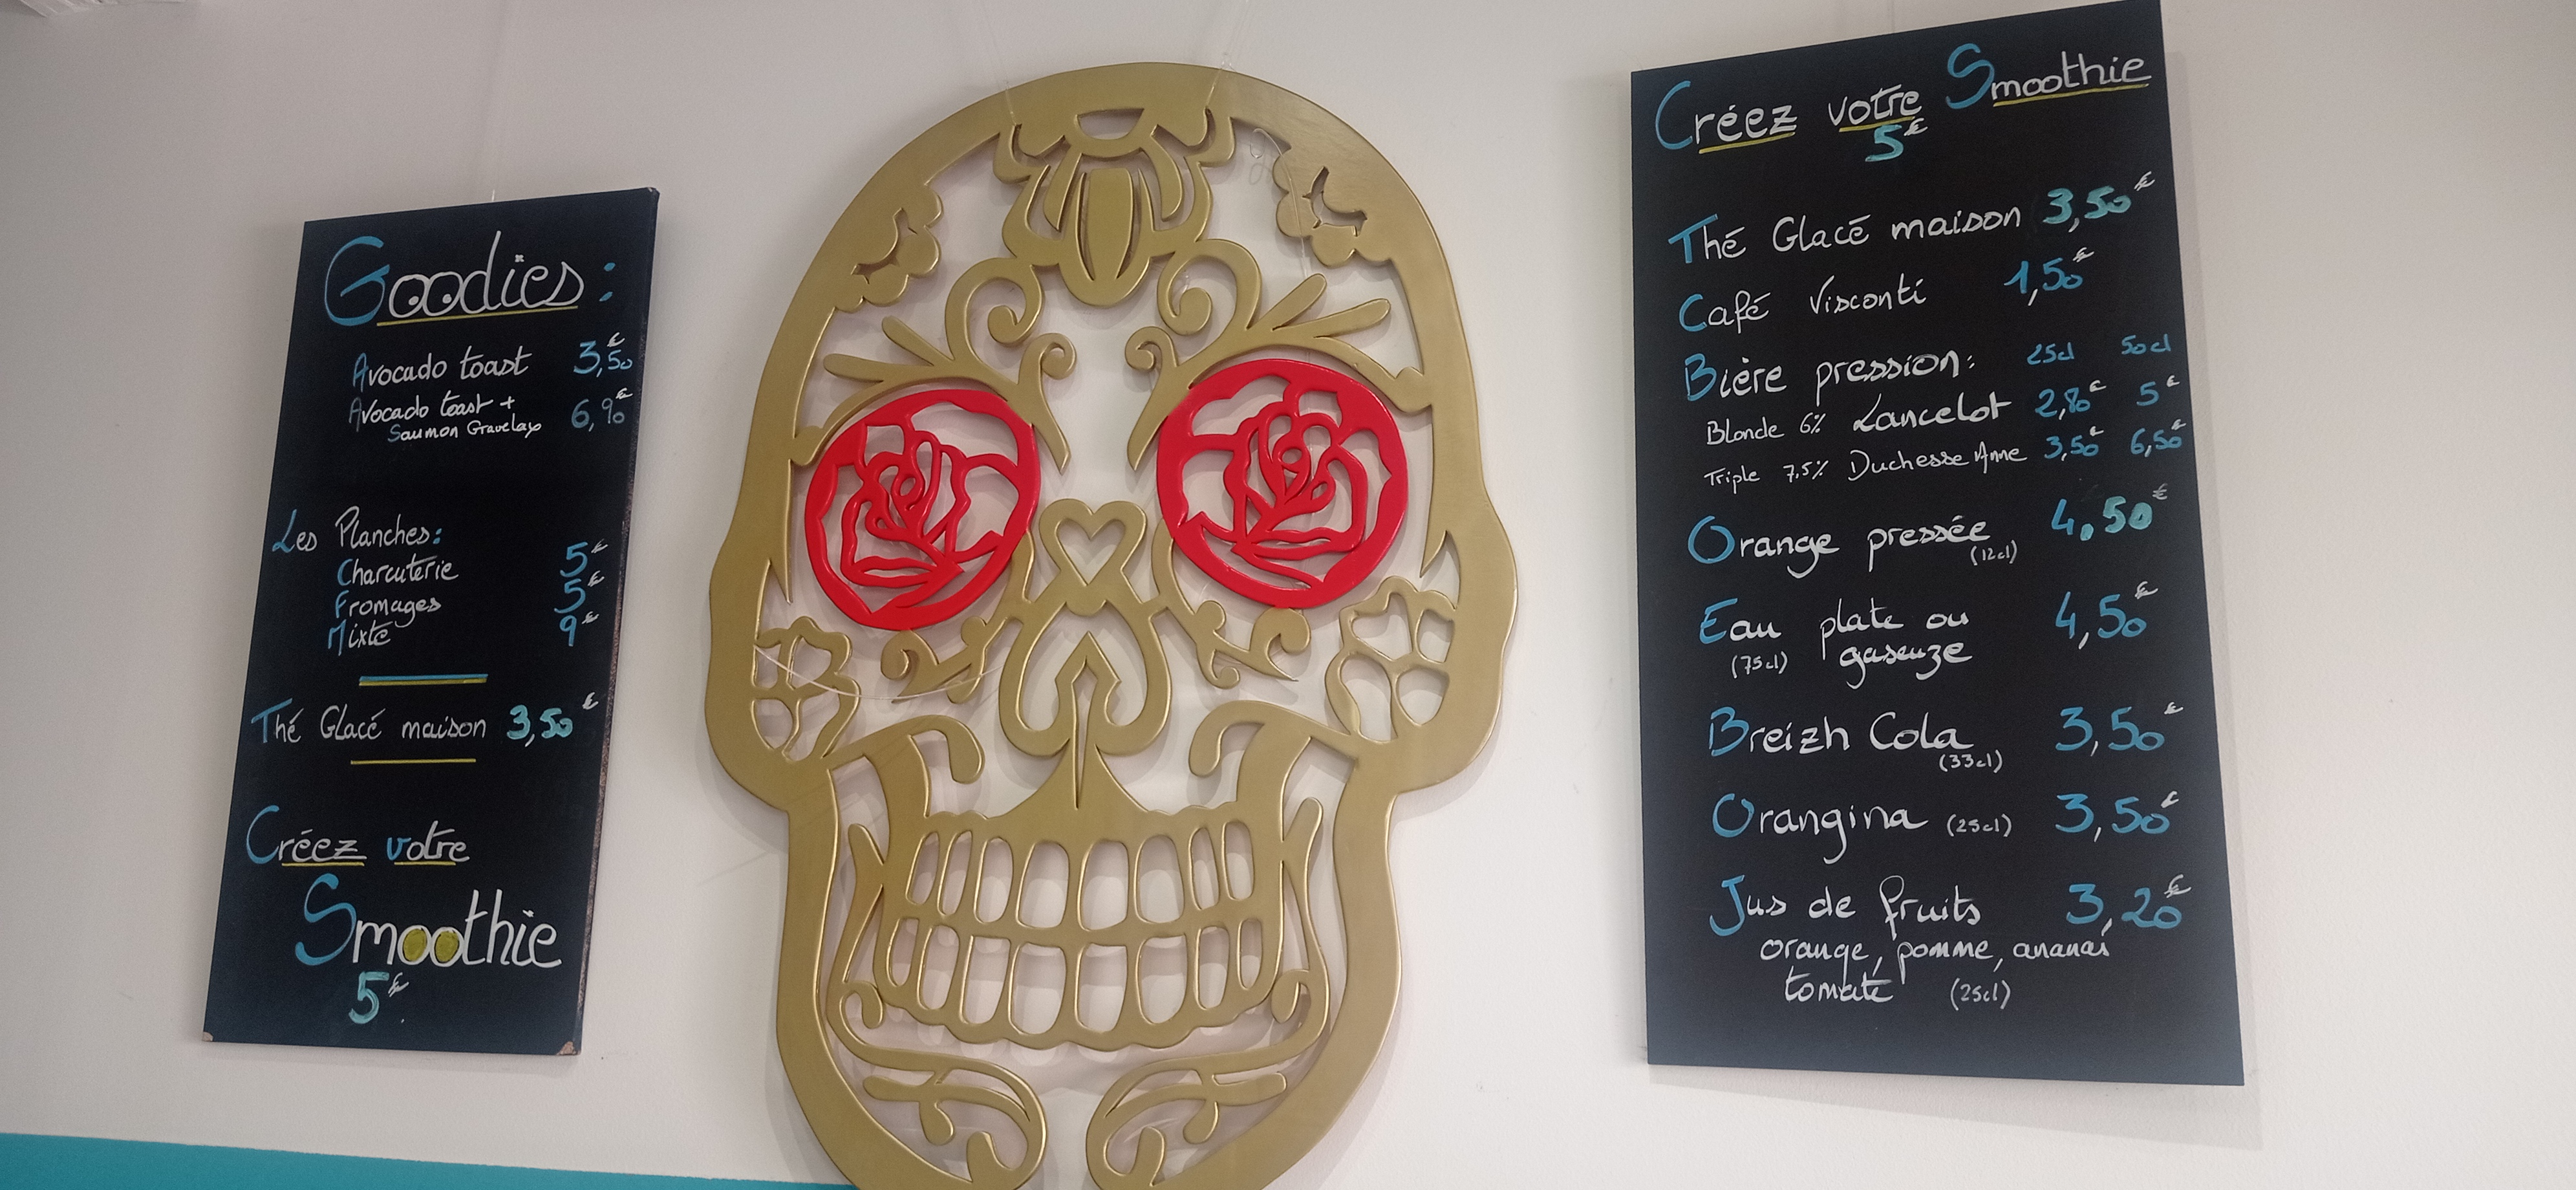 Goodies:
Avocado toast 3,50€
Avocado toast + 6,90€
Saumon Gravelax
Les Planches:
Charcuterie 5€
Fromages 5€
Mixte 9€
Thé Glacé maison 3,50€
Créez votre
Smoothie
5€
Créez votre Smoothie
5€
Thé Glacé maison 3,50€
Café Visconti 1,50€
Bière pression: 25cl 50cl
Blonde 6% Lancelot 2,80€ 5€
Triple 7,5% Duchesse Anne 3,50€ 6,50€
Orange pressée 4,50€
(12cl)
Eau plate ou 4,50€
(75cl) gaseuze
Breizh Cola 3,50€
(33cl)
Orangina (25cl) 3,50€
Jus de fruits 3,20€
orange, pomme, ananas
tomate (25cl)